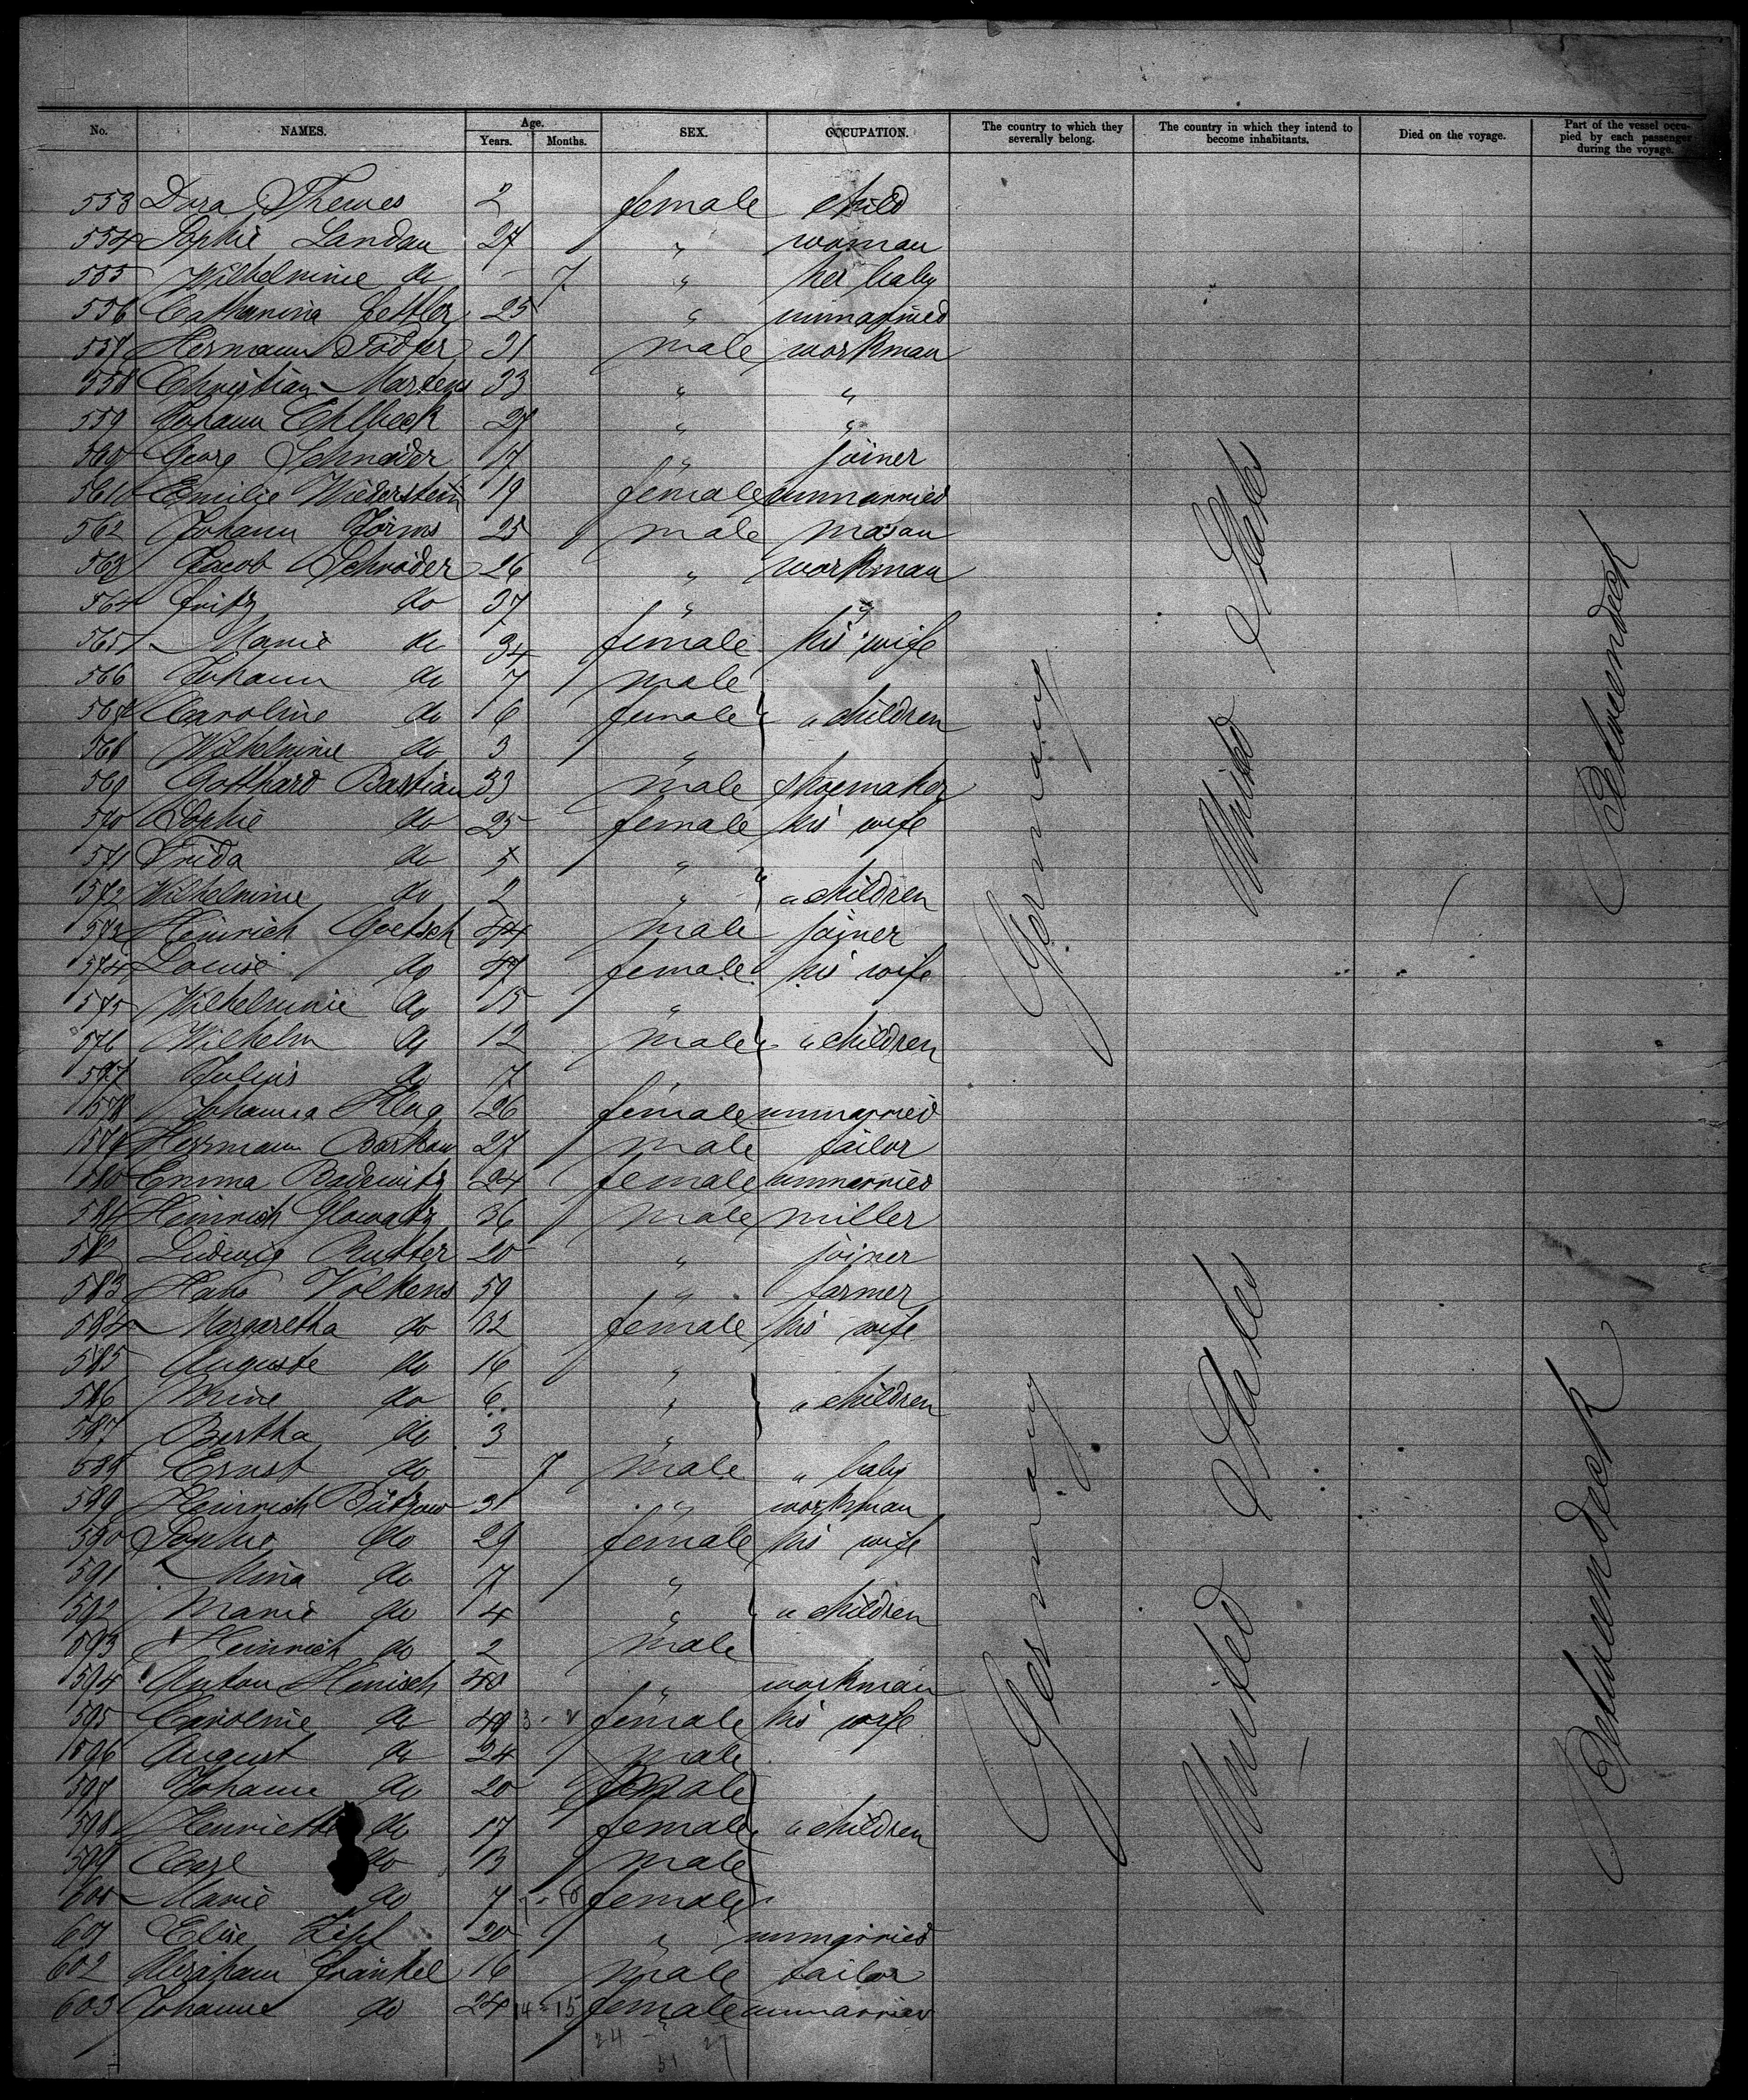 No. NAMES. Age. Years. Months. SEX. OCCUPATION. The country to which they severally belong. The country in which they intend to become inhabitants. Died on the voyage. Part of the vessel occupied by each passenger during the voyage.
553 Dora Thewes 2 female child
554 Sophie Landau 27 " woman
555 Wilhelmine do - 7 " her baby
556 Catharina 25 " unmarried
557 Hermann 31 male workman
558 Christian Martens 33 " "
559 Johann Ehlbeck 27 " "
560 Georg Schneider 17 " joiner
561 Emilie Wiederstein 19 female unmarried
562 Johann Jörns 25 male mason
563 Jacob Schröder 26 " workman
564 Fritz do 37 " "
565 Marie do 34 female his wife
566 Johann do 7 male
567 Caroline do 6 female " children
568 Wilhelmine do 3 "
569 Gotthard Bastian 33 male shoemaker
570 Sophie do 25 female his wife
571 Frida do 5 "
572 Wilhelmine do 2 " " children
573 Heinrich Goetsch 44 male joiner
574 Louise do 47 female his wife
575 Wilhelmine do 15 "
576 Wilhelm do 12 male " children
577 Julius do 7
578 Johanna Klug 26 female unmarried
579 Herrmann Borkow 27 male tailor
580 Emma Badewitz 24 female unmarried
581 Heinrich Glowatz 36 male miller
582 Ludwig 20 " joiner
583 Hans Volkens 59 " farmer
584 Margaretha do 32 female his wife
585 Auguste do 16 "
586 Mine do 6 " " children
587 Bertha do 3 "
588 Ernst do - 7 male " baby
589 Heinrich Bützow 31 " workman
590 Sophie do 29 female his wife
591 Mina do 7 "
592 Marie do 4 " " children
593 Heinrich do 2 male
594 Anton Henisch 40 " workman
595 Caroline do 49 3 - 2 female his wife
596 August do 24 male
597 Johann do 20 male
598 Henriette do 17 female " children
599 Carl do 13 male
600 Marie do 7 female
601 Elise Zipf 20 " unmarried
602 Abraham Fränkel 16 male tailor
603 Johanne do 24 14 - 15 female unmarried
24 - 27
51
Germany
United States
Betweendeck
Germany
United States
Betweendeck